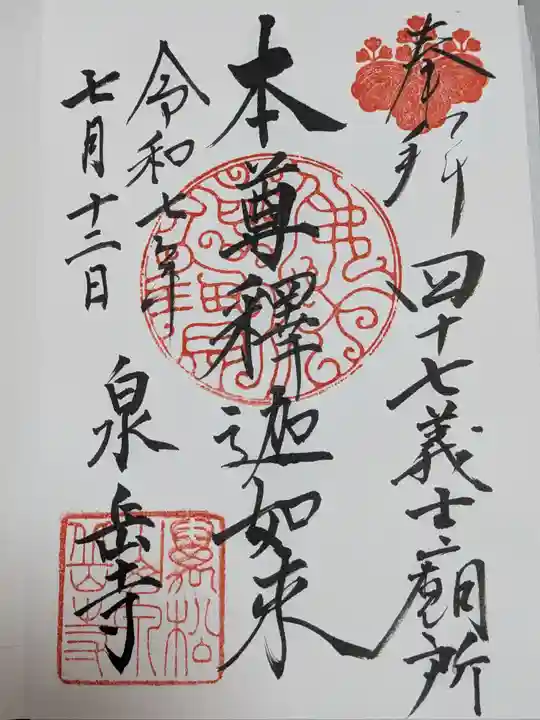 奉拝 四十七義士廟所
本尊釋迦如来
令和七年
七月十二日
泉岳寺